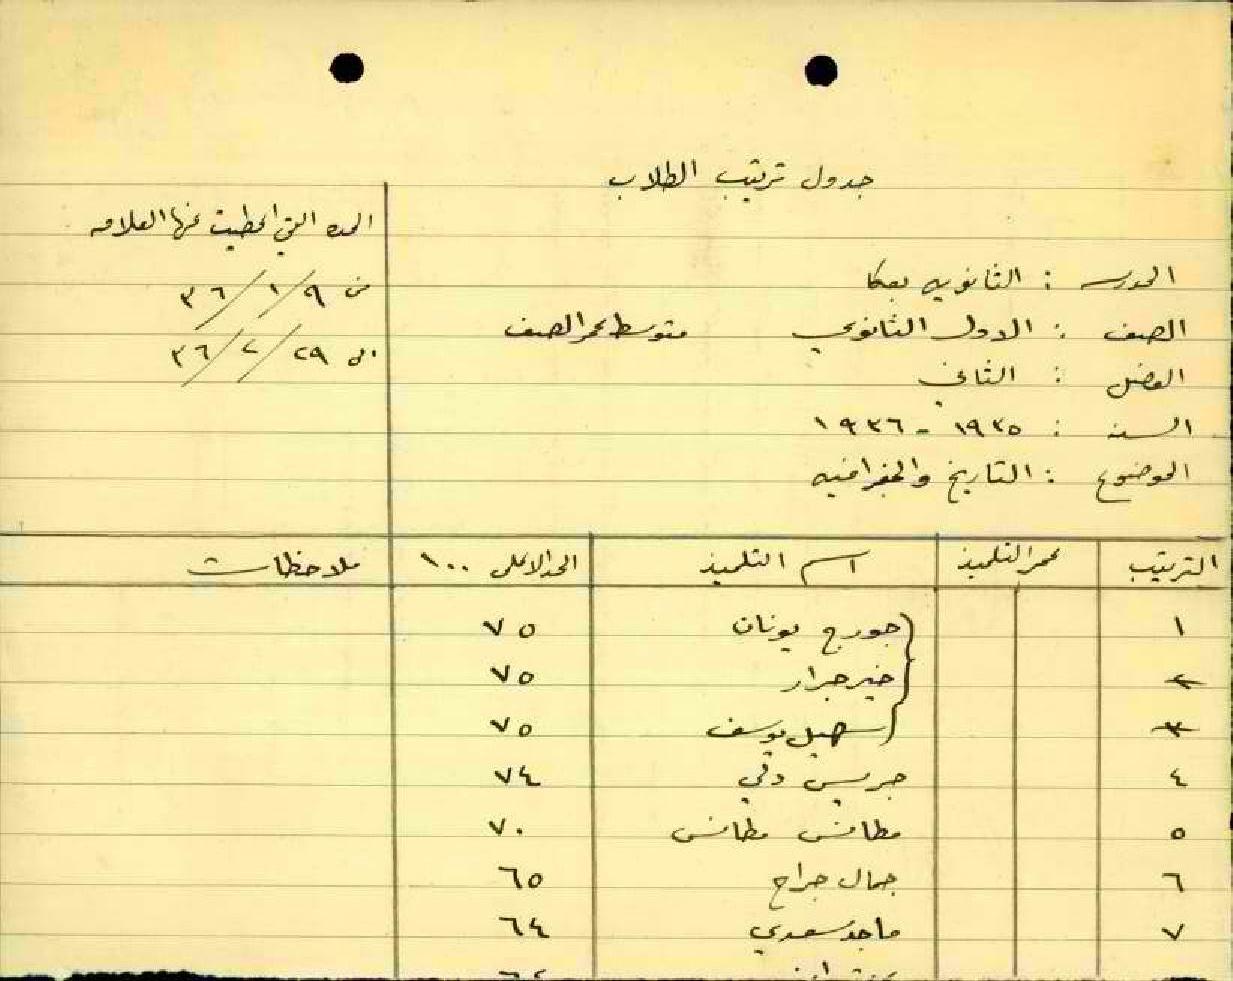 جدول ترتيب الطلاب
المده التي اعطيت عنها العلامه
من ٩/١/٣٦
الى ٢٩/٢/٣٦
المدرسه : الثانويه بعكا
الصف : الاول الثانوي متوسط عمر الصف
الفصل : الثاني
السنه : ١٩٣٥ - ١٩٣٦
الموضوع : التاريخ والجغرافيه
الترتيب عمر التلميذ اسم التلميذ الحد الاعلى ١٠٠ ملاحظات
١ جورج يونان ٧٥
٢ خير جرار ٧٥
٣ سهيل يوسف ٧٥
٤ جريس دلي ٧٤
٥ مطانس مطانس ٧٠
٦ جمال جراح ٦٥
٧ ماجد سعدي ٦٤